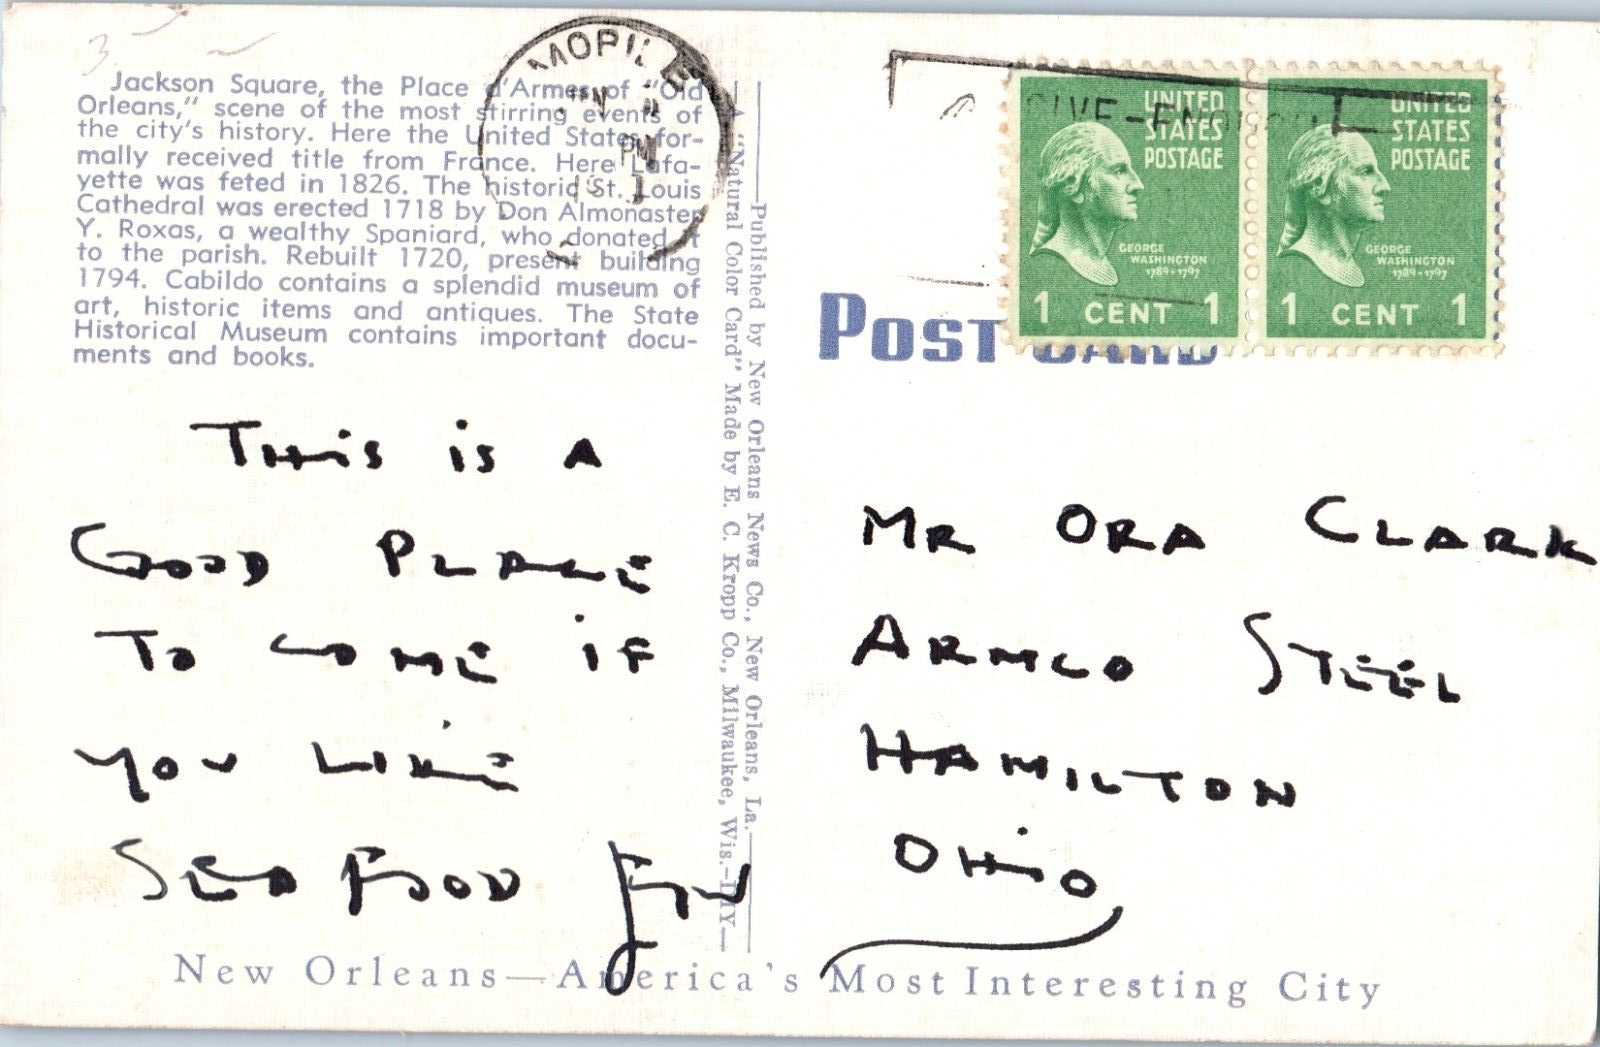 Jackson Square, the Place d'Armes of "Old
Orleans," scene of the most stirring events of
the city's history. Here the United States for-
mally received title from France. Here Lafa-
yette was feted in 1826. The historic St. Louis
Cathedral was erected 1718 by Don Almonaster
Y. Roxas, a wealthy Spaniard, who donated it
to the parish. Rebuilt 1720, present building
1794. Cabildo contains a splendid museum of
art, historic items and antiques. The State
Historical Museum contains important docu-
ments and books.
THIS IS A
GOOD PLACE
TO COME IF
YOU LIKE
SEA FOOD
Published by New Orleans News Co., New Orleans, La.
A "Natural Color Card" Made by E. C. Kropp Co., Milwaukee, Wis.
MOBILE
PM
UNITED
STATES
POSTAGE
GEORGE
WASHINGTON
1789-1797
1 CENT 1
UNITED
STATES
POSTAGE
GEORGE
WASHINGTON
1789-1797
1 CENT 1
POST CARD
MR ORA CLARK
ARMCO STEEL
HAMILTON
OHIO
New Orleans—America's Most Interesting City